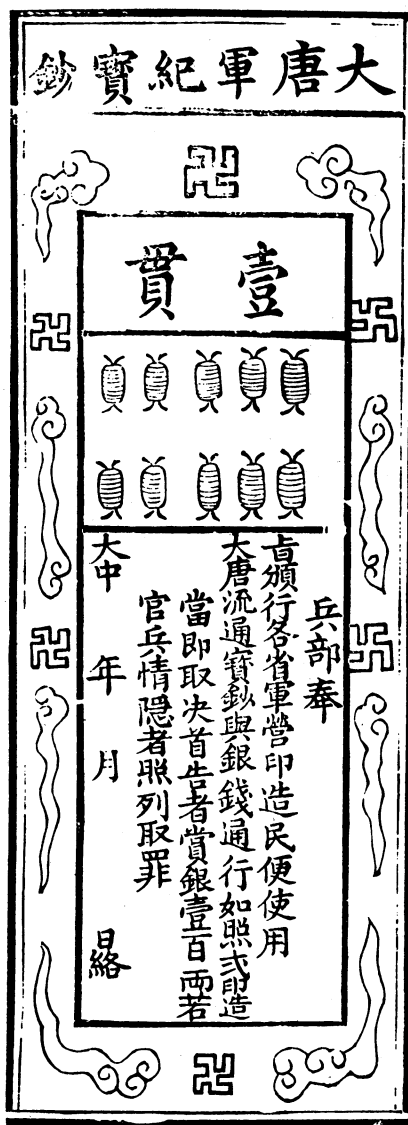 大唐軍紀寳鈔
壹貫
兵部奉
旨頒行各省軍營印造民便使用
大唐流通寳鈔與銀錢通行如照式印造
當即取决首告者賞銀壹百兩若
官兵情隱者照列取罪
大中　年　月　日給